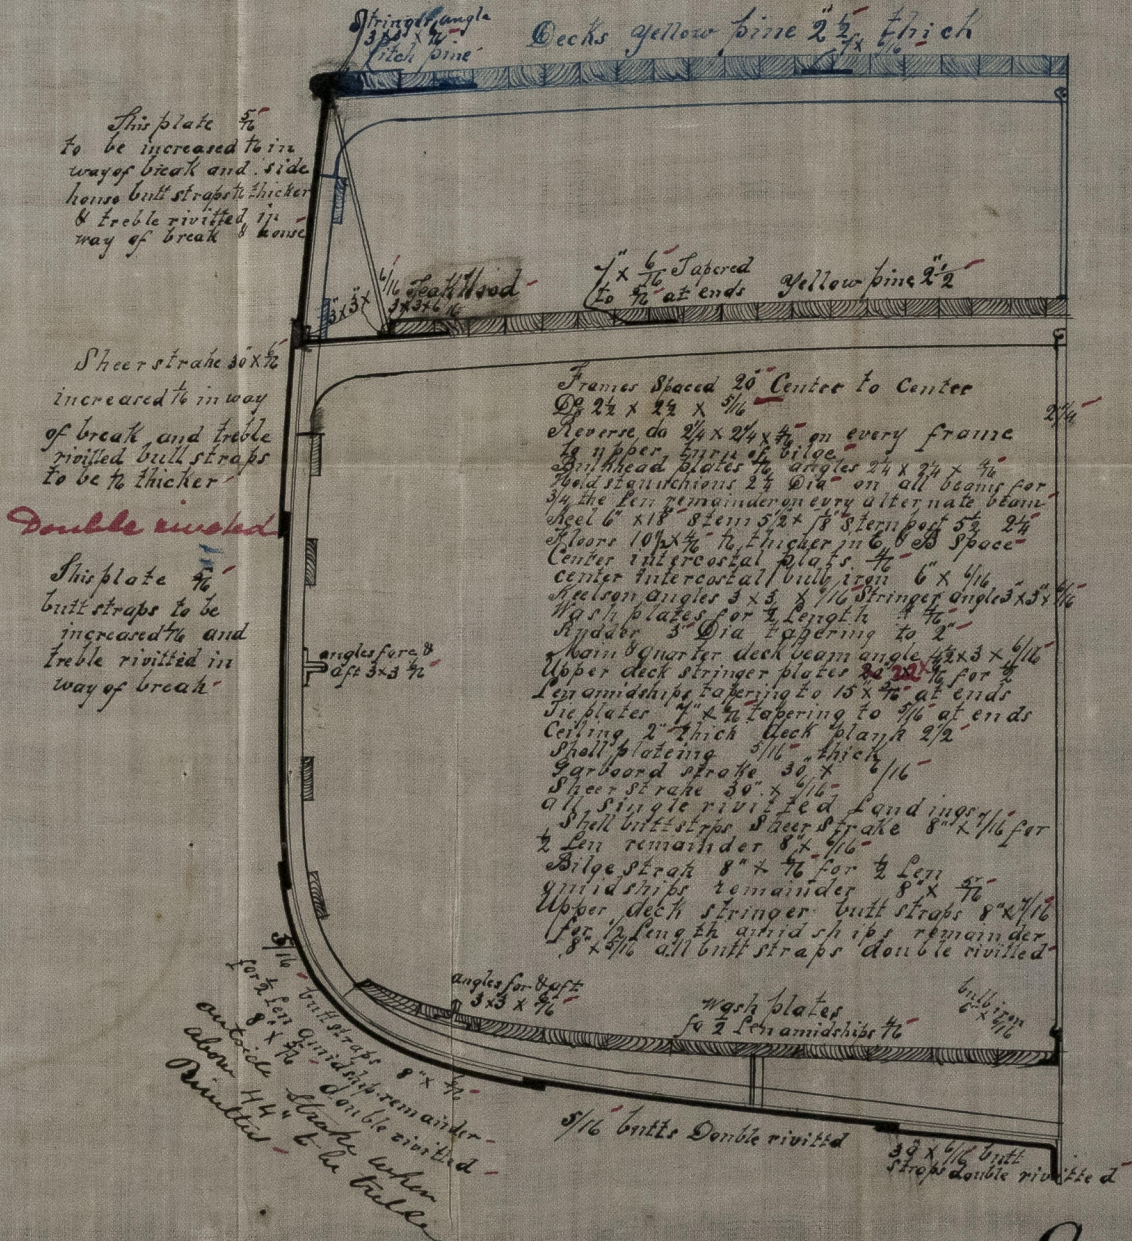 Stringer angle
3 x 3 x 6/16
Pitch pine
Decks Yellow pine 2 1/2" thick
7 x 6/16
This plate 5/16
to be increased 1/16 in
way of break and side
house butt straps 1/16 thicker
& treble rivitted in
way of break & house
3" x 3" x 6/16
Teak Wood
3 x 3 x 6/16
7" x 6/16 Tapered
to 5/16 at ends
Yellow pine 2 1/2"
Sheer strake 30 x 6/16
increased 1/16 in way
of break and treble
rivitted butt straps
to be 1/16 thicker
Double riveted
This plate 5/16
butt straps to be
increased 1/16 and
treble rivitted in
way of break
angles fore &
aft 3 x 3
Frames Spaced 20" Center to Center
Do 2 1/2 x 2 1/2 x 5/16
2 1/4
Reverse do 2 1/4 x 2 1/4 x 4/16 on every frame
to upper turn of bilge
Bulkhead plates 4/16 angles 2 1/4 x 2 1/4 x
Hold stanchions 2 1/4 Dia on all beams for
3/4 the Len remainder on evry alternate beam
Keel 6" x 1 1/8" Stem 5 1/2 x 1 1/8" Sternpost 5 1/2 2 1/4
Floors 10 1/2 x 4/16 1/16 thicker in E & B Space
Center intercostal plats 4/16
center intercostal bulb iron 6" x 6/16
Keelson angles 3 x 3 x 6/16 Stringer angle 3" x 3" x 6/16
Wash plates for 1/2 Length 4/16
Rudder 3" Dia tapering to 2"
Main & quarter deck beam angle 4 1/2 x 3 x 6/16
Upper deck stringer plates 22 x 6/16 for 1/2
Len amidships tapering to 15 x 5/16 at ends
Tie plates 7" x 6/16 tapering to 5/16 at ends
Ceiling 2" thick deck plank 2 1/2
Shell plateing 5/16 thick
Garboard strake 30 x 6/16
Sheer strake 30" x 6/16
all single rivitted Landings
Shell butt strps Sheer Strake 8" x 7/16 for
1/2 Len remainder 8" x 6/16
Bilge strak 8" x 6/16 for 1/2 Len
amidships remainder 8" x 5/16
Upper deck stringer butt straps 8" x 7/16
for 1/2 Length amidships remainder
8" x 5/16 all butt straps double rivitted
angles for & aft
3 x 3 x 6/16
Wash plates
fo 1/2 Len amidships 4/16
bulb iron
6" x 6/16
5/16 butt straps 8" x 6/16
for 1/2 Len amidship remainder
8" x 5/16 double rivitted
outside Strake when
above 44" to be treble
Rivitted
5/16 butts Double rivittd
30 x 6/16 butt
straps double rivitted